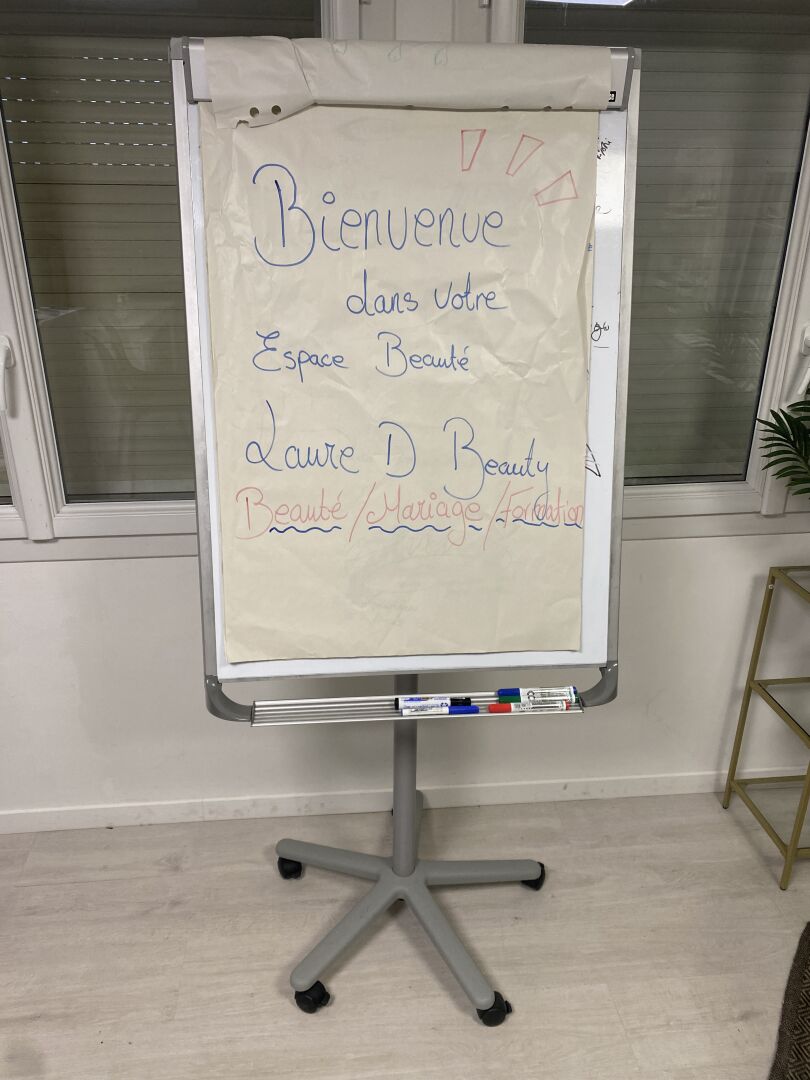 Bienvenue
dans votre
Espace Beauté
Laure D Beauty
Beauté / Mariage / Formation